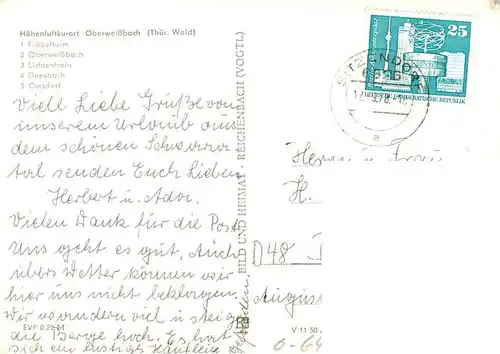 Höhenluftkurort Oberweißbach (Thür. Wald)
1 Fröbelturm
2 Oberweißbach
3 Lichtenhain
4 Deesbach
5 Cursdorf
Viele Liebe Grüße von
unserem Urlaub aus
dem schönen Schwarza
tal senden Euch Lieben
Herbert u.
Vielen Dank für die Post
Uns geht es gut, Auch
übers Wetter können wir
hier uns nicht beklagen.
Wir wandern viel u steig
die Berge hoch. Es hat
sich ein lustiges Häuflein
EVP 0,25 M
BILD UND HEIMAT · REICHENBACH (VOGTL)
V 11 50
25
SITZENDORF
a
Herrn u. Frau
H.
D48
August
0-64